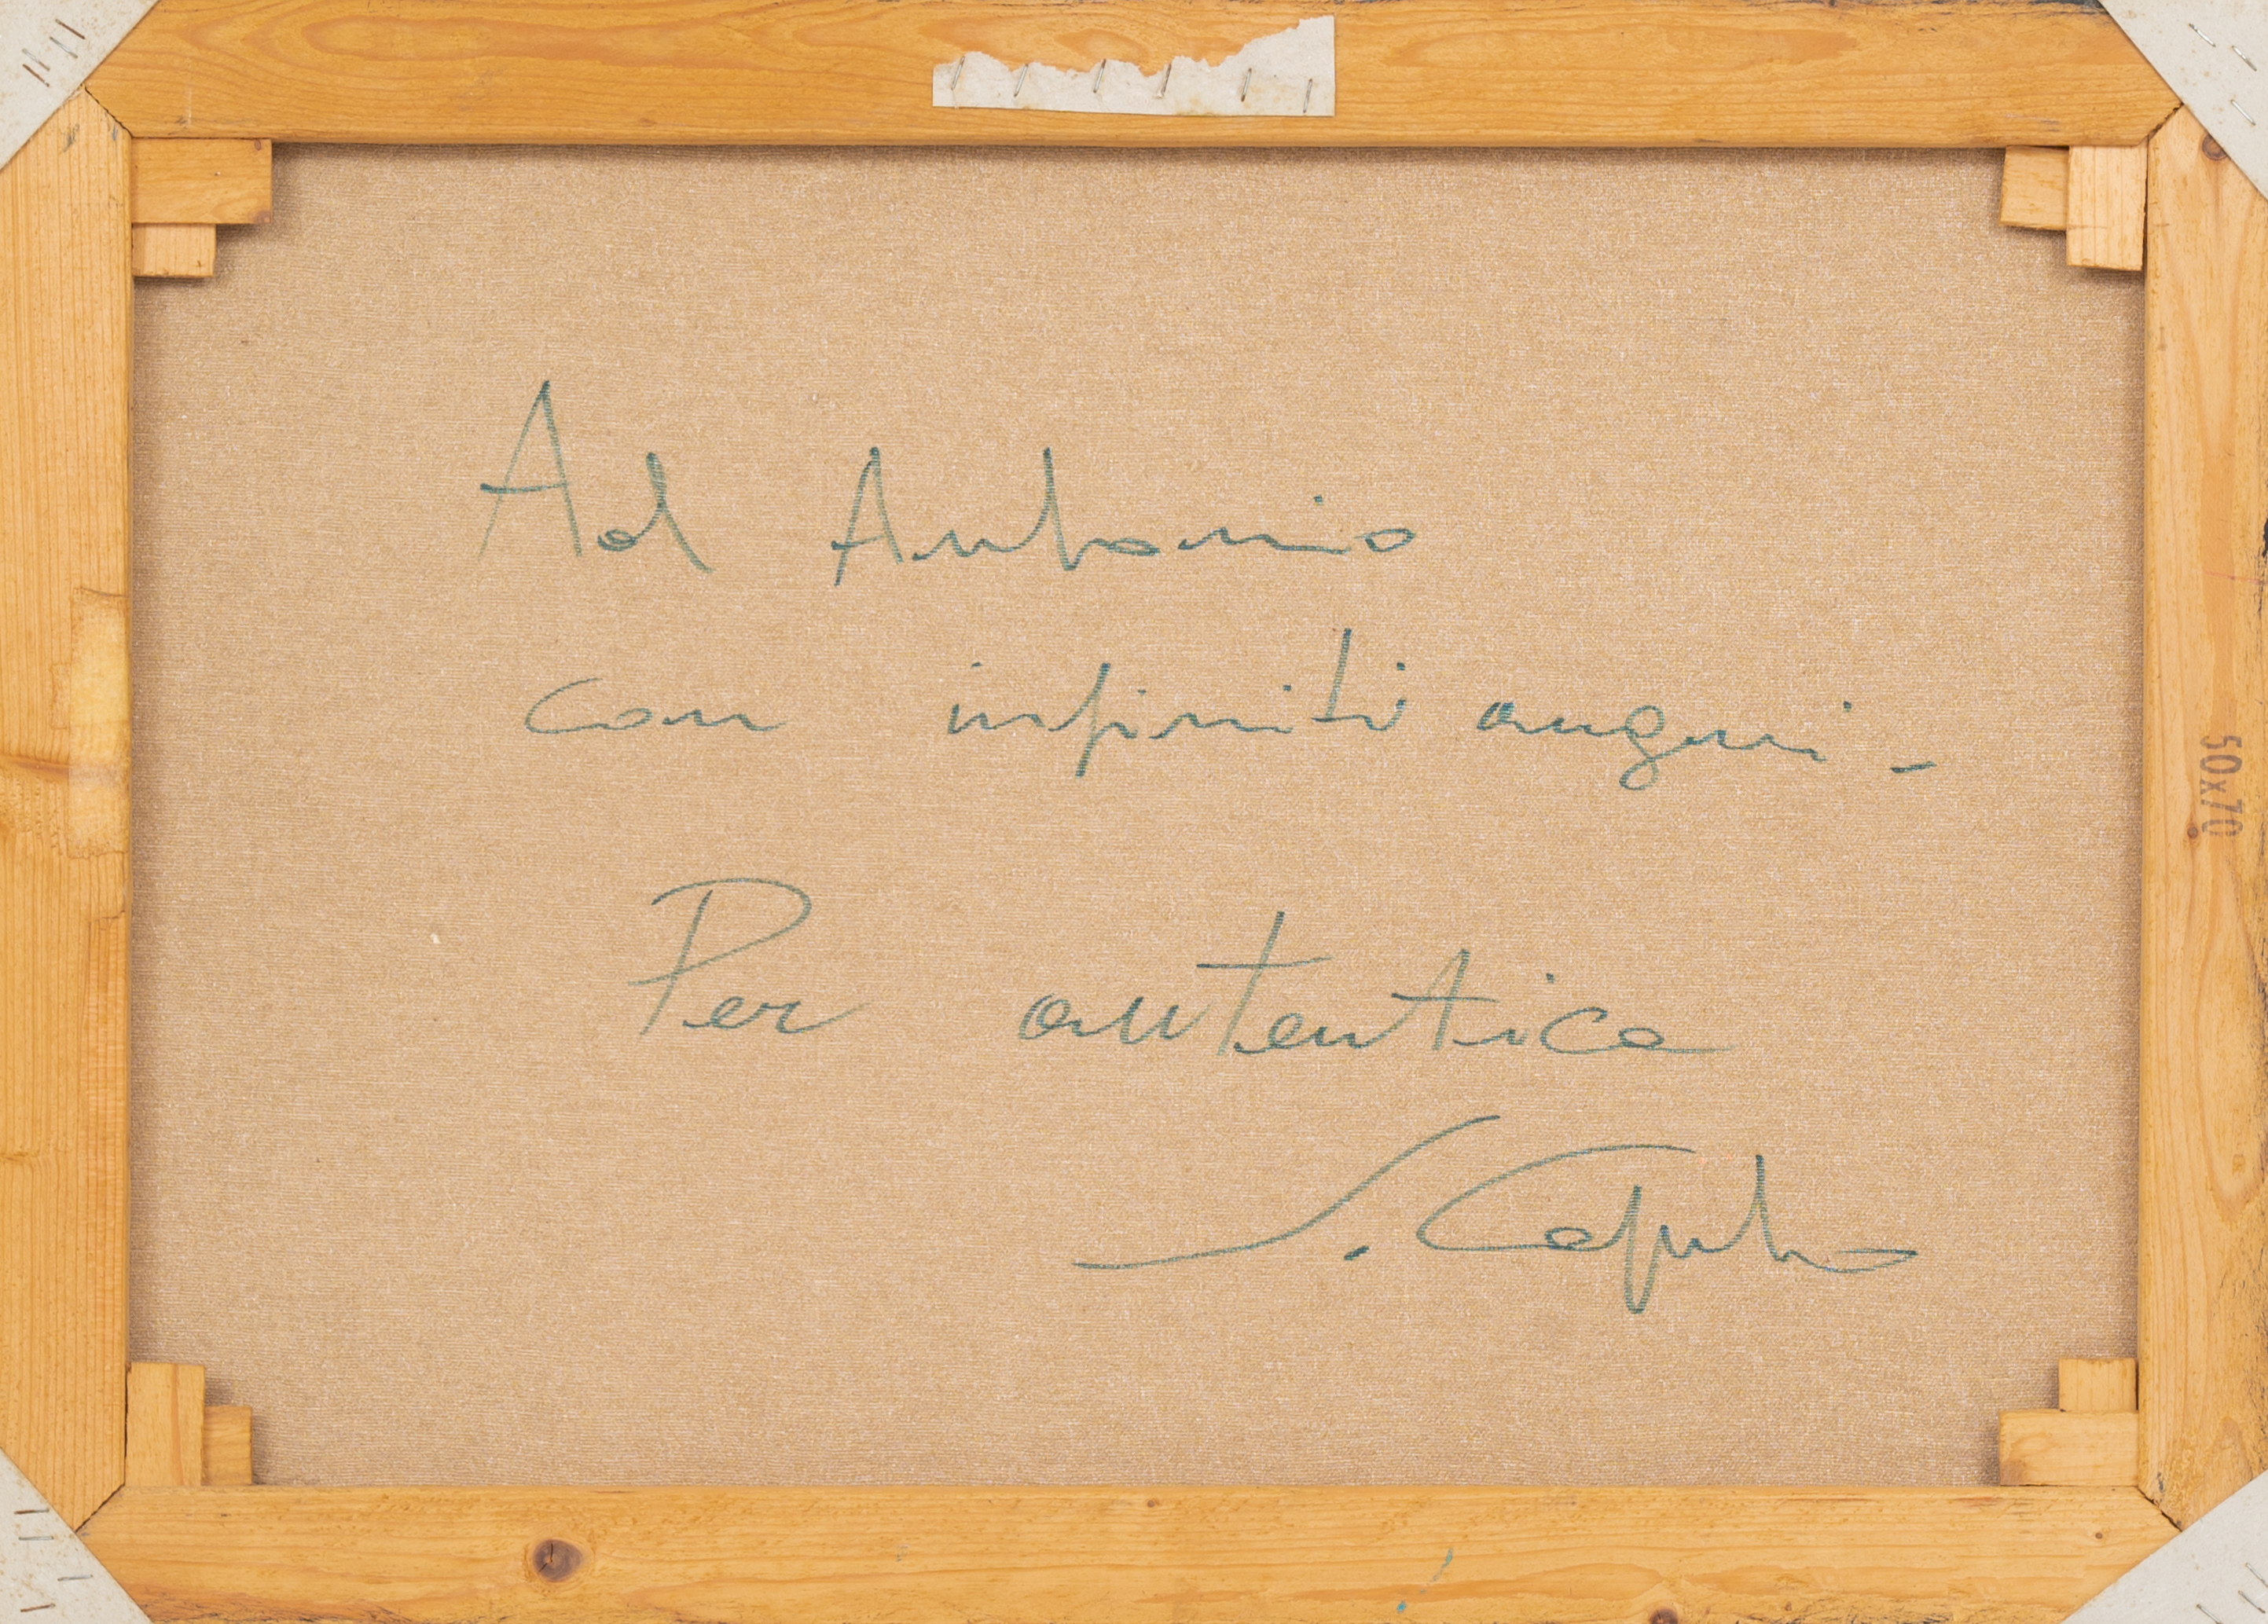 Ad Antonio
con infiniti auguri -
Per autentica
S. Caputo
50x70